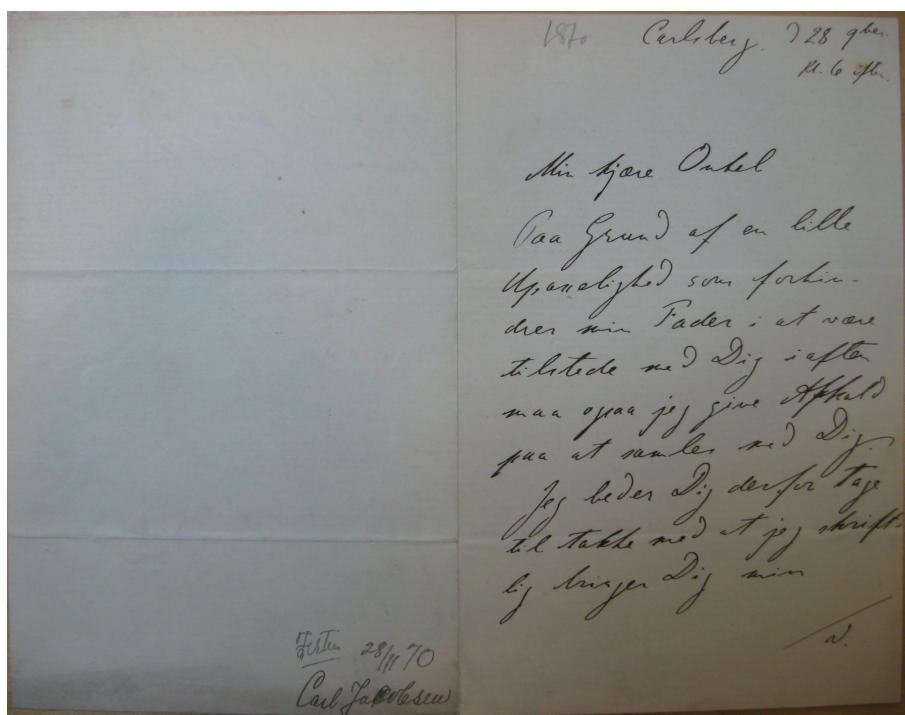 1870
Carlsberg. D 28 9ber.
Kl. 6 Eftm.
Min kjære Onkel
Paa Grund af en lille
Upasselighed som forhin-
drer min Fader i at være
tilstede med Dig i aften
maa ogsaa jeg give Afkald
paa at samles med Dig.
Jeg beder Dig derfor tage
til Takke med at jeg skrift-
lig bringer Dig min
28/11 70
Carl Jacobsen